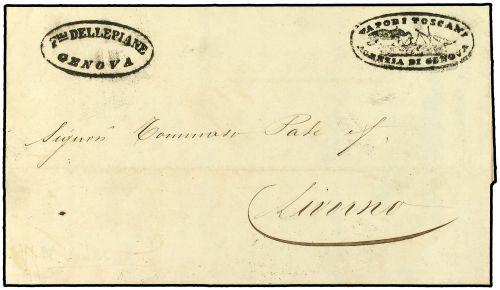 Flli DELLEPIANE
GENOVA
VAPORI TOSCANI
AGENZIA DI GENOVA
Signori Tommaso Pate
Livorno